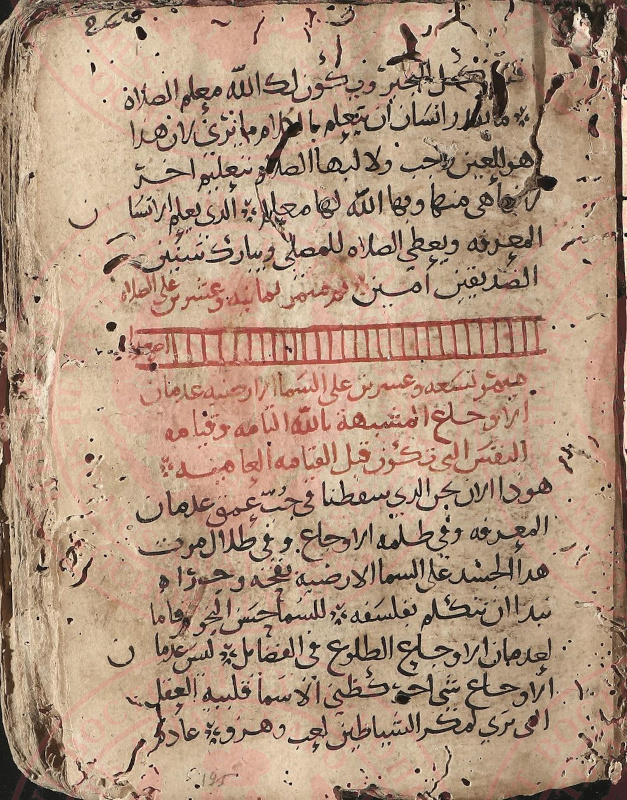 الخير ويكون لك الله معلم الصلاه
انسان ان يتعلم بالكلام ما نرى لان هدا
هو للعين واحب ولا لبها الصلاه بتعليم اخر
هى منها وبها الله لها معلم الدى يعلم الانسا
المعرفه ويعطى الصلاه للمصلى ويبارك سنين
الصديقين امين تم ميمر تمانيه وعشرين على الصلاه
ميمر تسعه وعشرين على السما الارضيه عدمان
الاوجاع المشبهة بالله التامه وقيامه
النفس التى تكون قبل القيامه العاميه
هودا الان نحن الدى سقطنا فى جب عميق عدمان
المعرفه وفى ظلمه الاوجاع وفى ظلال موت
هدا الجسد على السما الارضيه بقحه وجراه
نبدا ان نتكلم بفلسفه للسما حسن النجوم واما
لعدمان الاوجاع الطلوع فى الفضايل ليس عدمان
الاوجاع شى اخر كظنى الا سما قلبيه العقل
التى ترى لمكر الشياطين لعب وهزو عادم
195